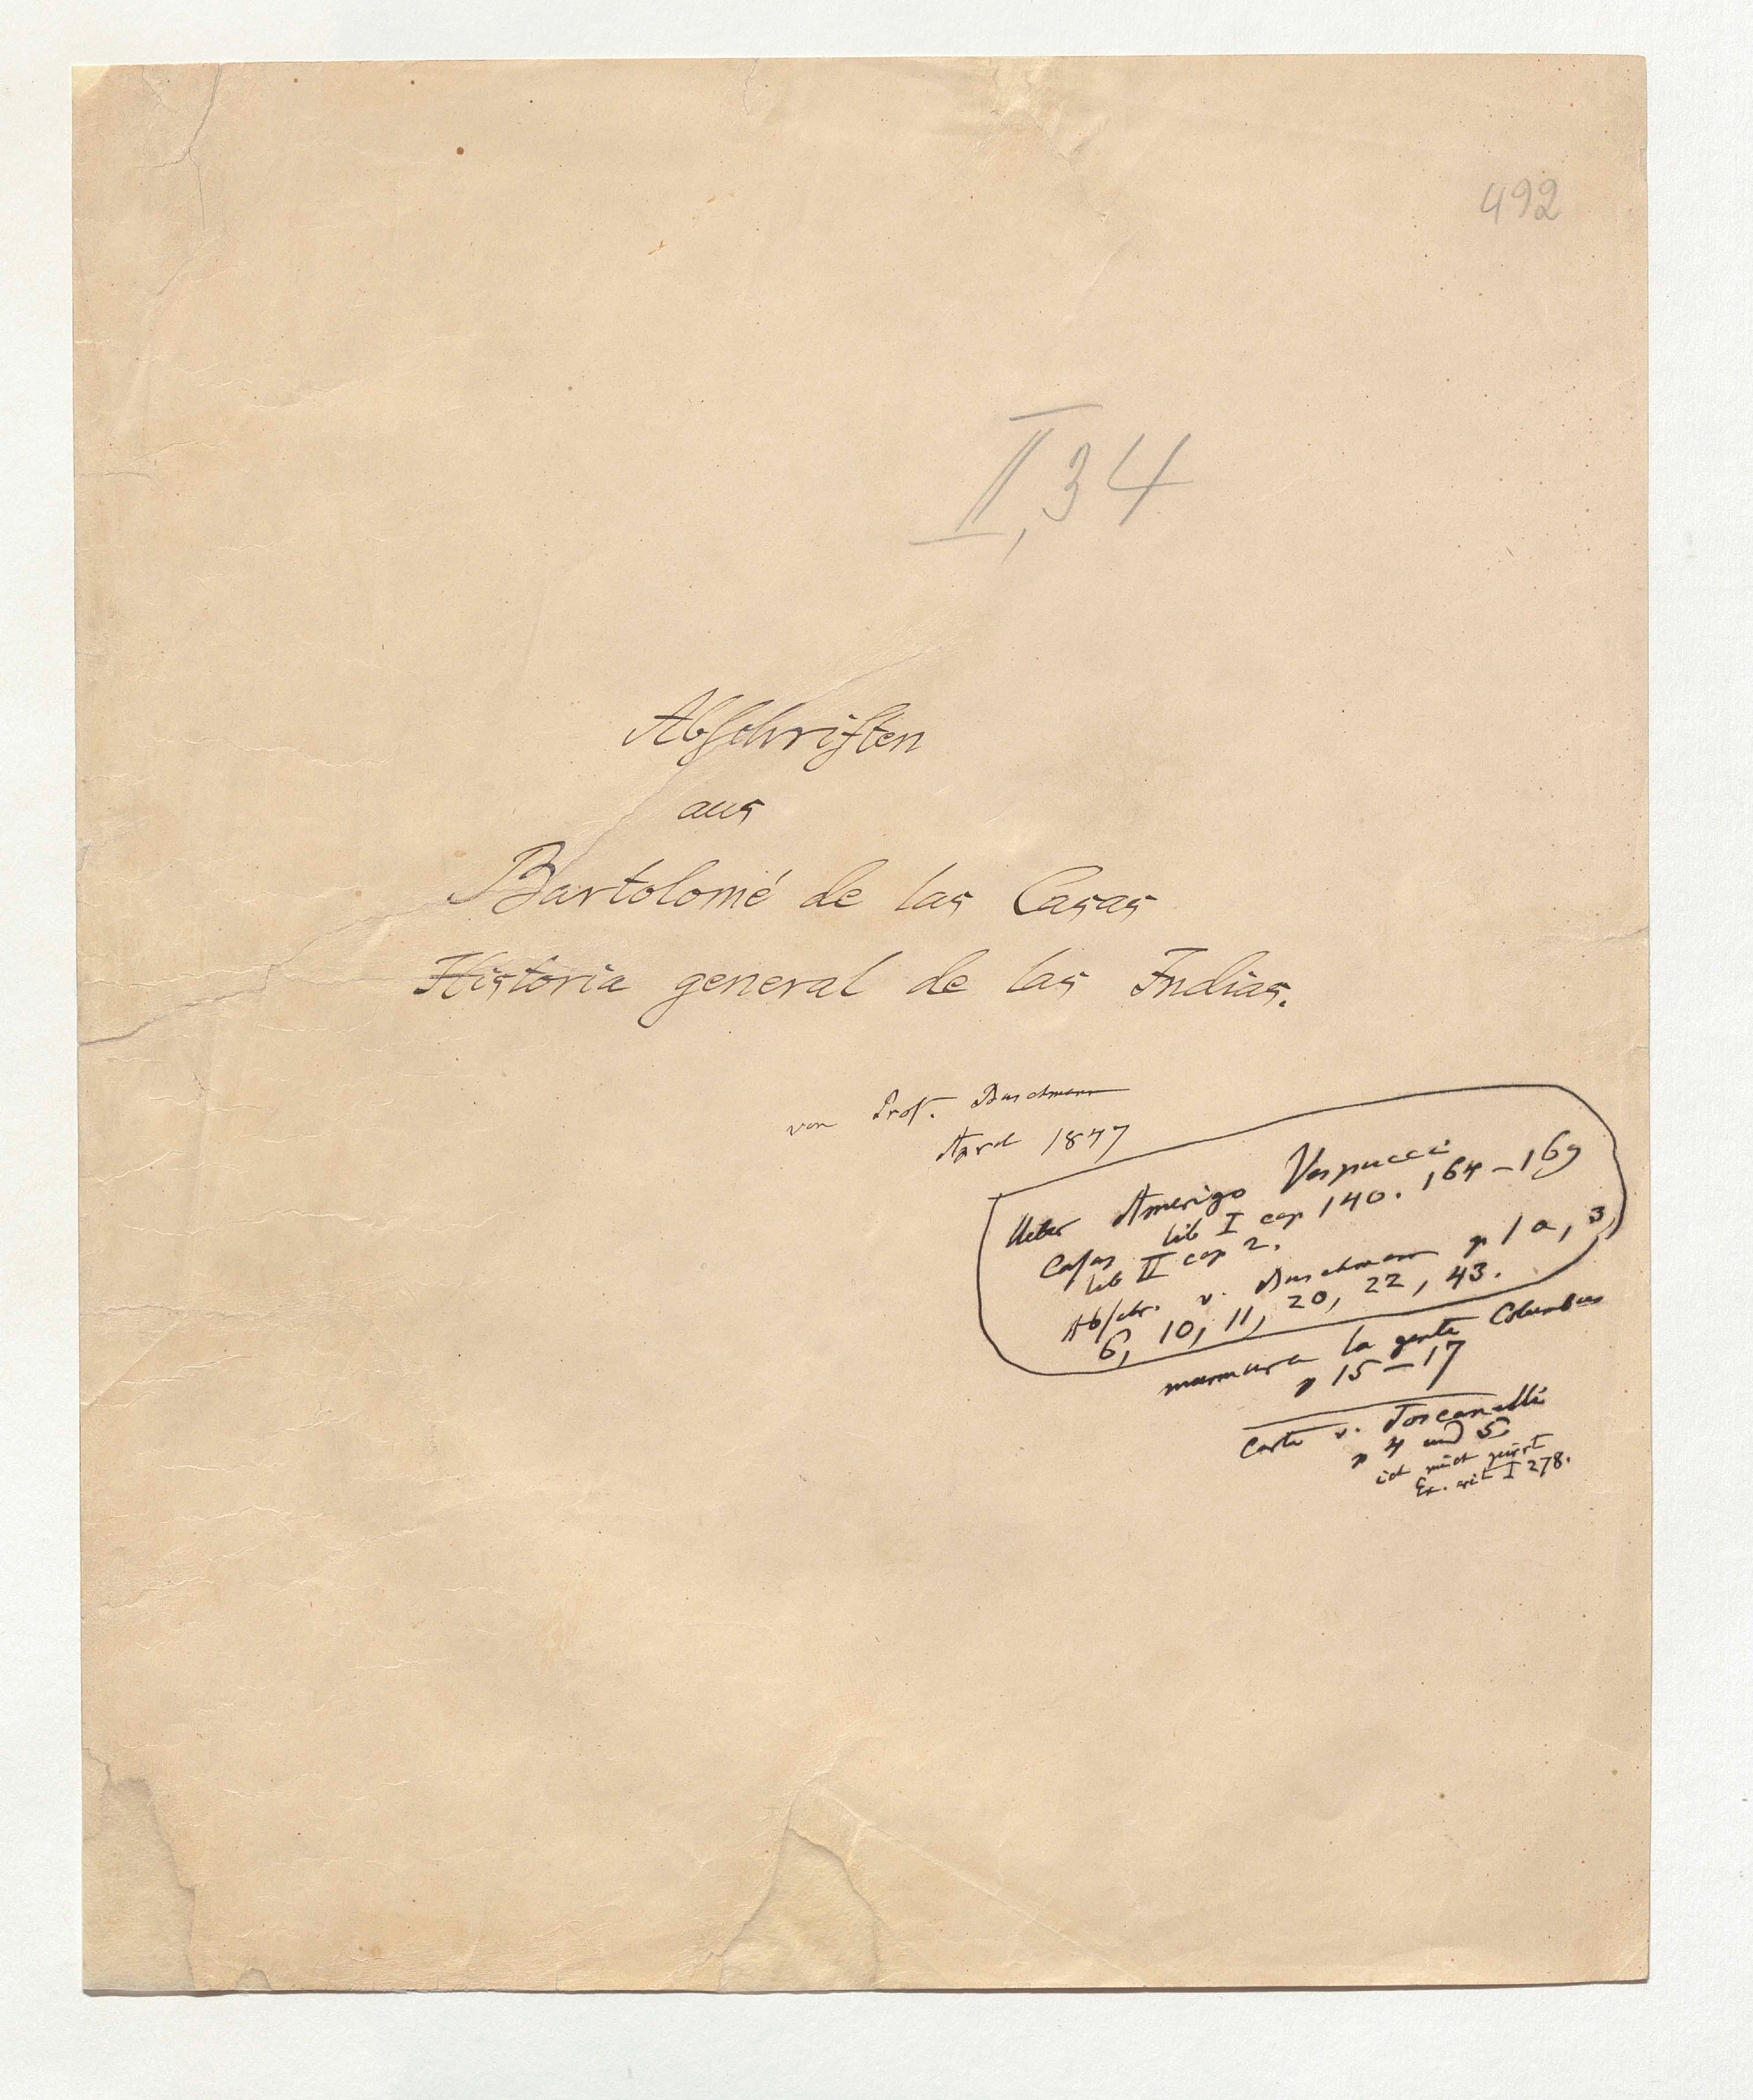 492
II, 34
Abſchriften
aus
Bartolomé de las Casas
Historia general de las Indias.
von Prof. Buschmann
April 1847
Ueber Amerigo Vespucci
Caſas lib I cap 140. 164–169
lib II cap 2.
Abſchr. v. Buschmann p 1a, 3,
6, 10, 11, 20, 22, 43.
murmura la gente Columbus
p 15–17
Carte v. Toscanelli
p 4 und 5
ich mich geirrt
Ex. crit I 278.